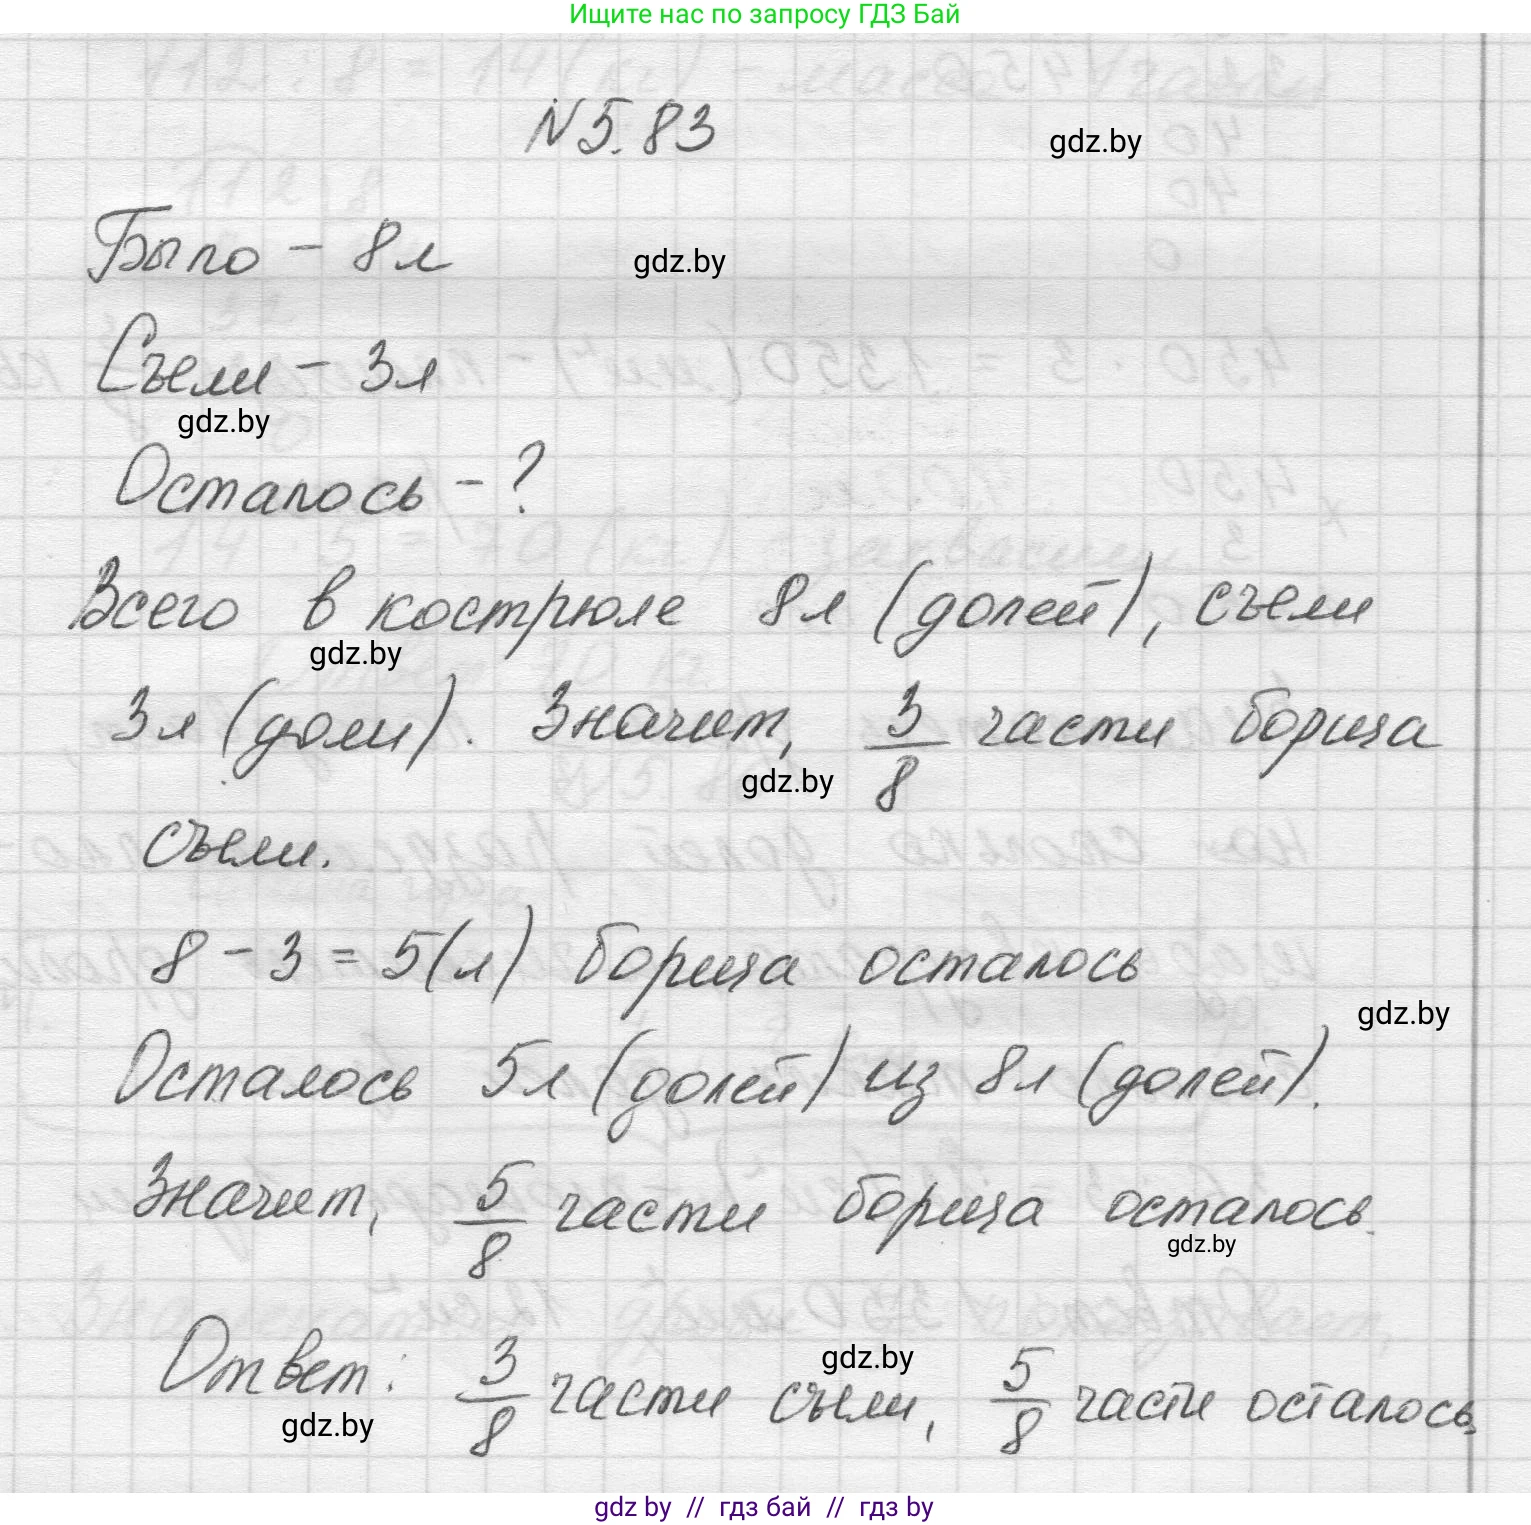 Ищите нас по запросу ГДЗ Бай
N 5.83
gdz.by
Было - 8л
gdz.by
Съели - 3л
gdz.by
Осталось - ?
Всего в кострюле 8л (долей), съели
gdz.by
3л (доли). Значит, 3/8 части борща
gdz.by
съели.
8 - 3 = 5(л) борща осталось
gdz.by
Осталось 5л (долей) из 8л (долей).
Значит, 5/8 части борща осталось.
gdz.by
Ответ: 3/8 части съели, 5/8 части осталось.
gdz.by
gdz.by
gdz by // гдз бай // гдз by